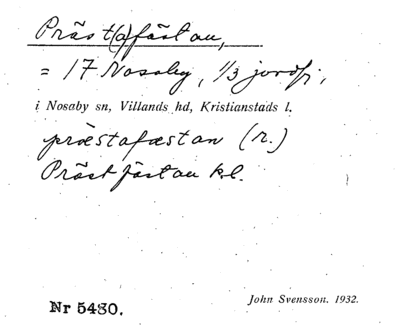 Präst(a)fästan,
= 17 Nosaby, 1/3 jordfr,
i Nosaby sn, Villands hd, Kristianstads l.
præstafæstan (n.)
Prästfästan kl.
John Svensson. 1932.
Nr 5480.